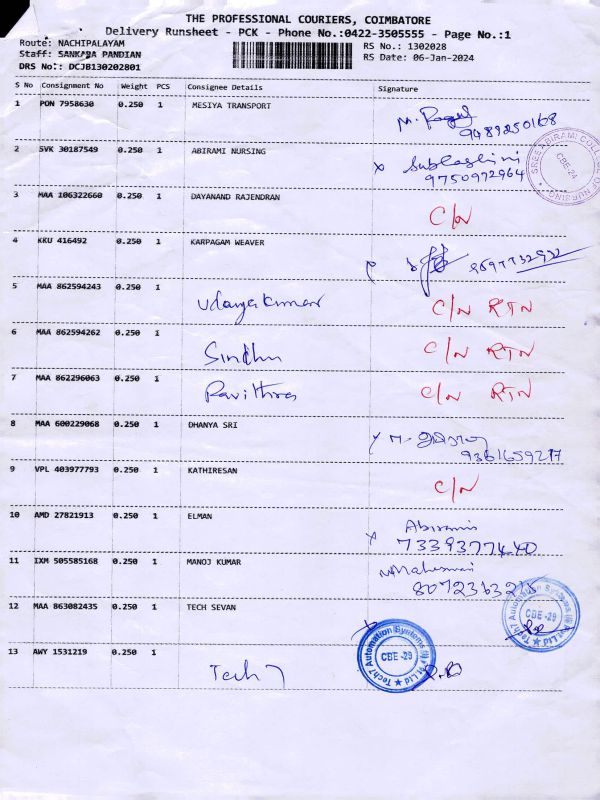 THE PROFESSIONAL COURIERS, COIMBATORE
Delivery Runsheet - PCK - Phone No.:0422-3505555 - Page No.:1
Route: NACHIPALAYAM RS No.: 1302028
Staff: SANKARA PANDIAN RS Date: 06-Jan-2024
DRS No:: DCJB130202801
S No Consignment No Weight PCS Consignee Details Signature
1 PON 7958630 0.250 1 MESIYA TRANSPORT
9489250168
2 SVK 30187549 0.250 1 ABIRAMI NURSING Subhashini
9750972964
SREE ABIRAMI COLLEGE OF NURSING CBE-24
3 MAA 106322660 0.250 1 DAYANAND RAJENDRAN C/N
4 KKU 416492 0.250 1 KARPAGAM WEAVER
5 MAA 862594243 0.250 1 Udayakumar C/N RTN
6 MAA 862594262 0.250 1 Sindhu C/N RTN
7 MAA 862296063 0.250 1 Pavithra C/N RTN
8 MAA 600229068 0.250 1 DHANYA SRI
9361659217
9 VPL 403977793 0.250 1 KATHIRESAN C/N
10 AMD 27821913 0.250 1 ELMAN Abirami
7339377440
11 IXM 505585168 0.250 1 MANOJ KUMAR Maheswari
12 MAA 863082435 0.250 1 TECH SEVAN
Tech7 Automation Systems (I) Pvt Ltd CBE -29
13 AWY 1531219 0.250 1 Tech 7
Tech7 Automation Systems (I) Pvt Ltd CBE -29